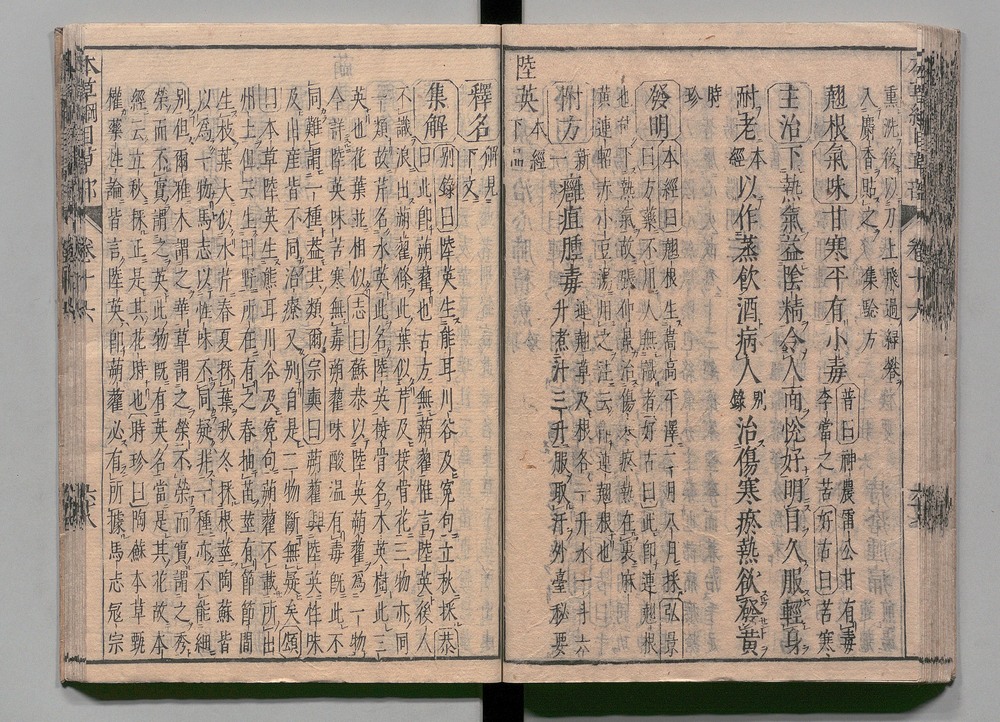 熏洗後以刀上飛過
入麝香貼之 集驗方
翹根 氣味甘寒平有小毒 普曰神農雷公甘有毒李當之苦 好古曰苦寒
主治 下熱氣益陰精令人面悅好明目久服輕身
耐老 本經 以作蒸飲酒病人 別錄 治傷寒瘀熱欲發黃
時珍
發明 本經曰翹根生嵩高平澤二月八月採 弘景
曰方藥不用人無識者 好古曰此即連翹根
也
黃連翹赤小豆湯用之註云即連翹根也
附方 新一 癰疽腫毒 連翹草及根各一升水一斗六升煮汁三升服取汗外臺秘要
陸英 本經下品
釋名 解見下文
集解 別錄曰陸英生熊耳川谷及冤句立秋採 恭
曰此即蒴藋也古方無蒴藋惟言陸英後人
不識浪出蒴藋條此葉似芹及接骨花三物亦同
一類故芹名水英此名陸英接骨名木英樹此三
英也花葉並相似 志曰蘇恭以陸英蒴藋為一物
今詳陸英味苦寒無毒蒴藋味酸溫有毒既此不
同難謂一種蓋其類爾 宗奭曰蒴藋與陸英性味
及出產皆不同治療又別自是二物斷無疑矣 頌
曰本草陸英生熊耳川谷及冤句蒴藋不載所出
州土但云生田野所在有之春抽苗莖有節節間
生枝葉大似水芹春夏採葉秋冬採根莖陶蘇皆
以為一物馬志以性味不同疑非一種亦不能細
別但爾雅木謂之華草謂之榮不榮而實謂之秀
榮而不實謂之英此物既有英名當是其花故本
經云立秋採正是其花時也 時珍曰陶蘇本草甄
權藥性論皆言陸英即蒴藋必有所據馬志寇宗
卷十六
卷十六